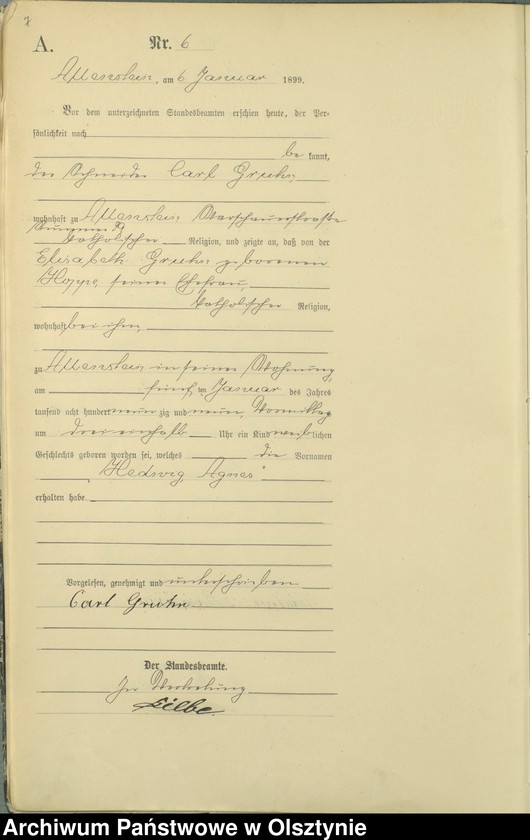 7
A. Nr. 6
Allenstein, am 6 Januar 1899.
Vor dem unterzeichneten Standesbeamten erschien heute, der Per-
sönlichkeit nach
be kannt,
der Schneider Carl Gruhn,
wohnhaft zu Allenstein, Oberschauerstraße
Nummer
katholischer Religion, und zeigte an, daß von der
Elisabeth Gruhn geborenen
Hoppe, seiner Ehefrau,
katholischer Religion,
wohnhaft bei ihm,
zu Allenstein in seiner Wohnung,
am fünf ten Januar des Jahres
tausend acht hundert neun zig und neun, Vormittag
um drei einhalb Uhr ein Kind weiblichen
Geschlechts geboren worden sei, welches die Vornamen
„Hedwig Agnes“
erhalten habe.
Vorgelesen, genehmigt und unterschrieben
Carl Gruhn
Der Standesbeamte.
In Vertretung
Archiwum Państwowe w Olsztynie